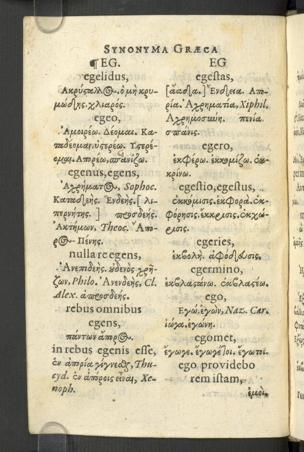 SYNONYMA GRÆCA
¶EG.
egelidus,
Ἀκρύσταλλος. ὁ μὴ κρυ-
μώδης. χλιαρός.
egeo,
Ἀμοιρέω. Δέομαι. Κα-
ταδέομαι. ὑστερέω. Ὑστερέ-
ομαι. Ἀπορέω. σπανίζω.
egenus, egens,
Ἀχρήματος, Sophoc.
Καταδεής. Ἐνδεής. [λι-
περνήτης.] ἀπροσδεής.
Ἀκτήμων. Theoc. Ἄπο-
ρος. Πένης.
nulla re egens,
Ἀνεπιδεής. οὐδενὸς χρῄ-
ζων. Philo. Ἀνενδεής, Cl.
Alex. ἀπροσδεής.
rebus omnibus
egens,
πάντων ἄπορος.
in rebus egenis esse,
ἐν ἀπορίᾳ γίγνεσθαι, Thu-
cyd. ἐν ἀπόροις εἶναι, Xe-
noph.
EG
egestas,
Ἔνδεια. Ἀπο-
ρία. Ἀχρηματία, Xiphil.
Ἀχρημοσύνη. πενία.
σπάνις.
egero,
ἐκφέρω. ἐκκομίζω. ἐκ-
κρίνω.
egestio, egestus,
ἐκκόμισις. ἐκφορά. ἐκ-
φόρησις. ἔκκρισις. ἐκχώ-
ρισις.
egeries,
ἐκβολή. ἀφόδευσις.
egermino,
ἐκβλαστάνω. ἐκβλαστέω.
ego,
Ἐγώ. ἐγών, Naz. Car.
ἰώγα. ἐγώνη.
egomet,
ἔγωγε. ἐγωγέϊοι. ἐγωπι.
ego providebo
rem istam,
ἐμοὶ